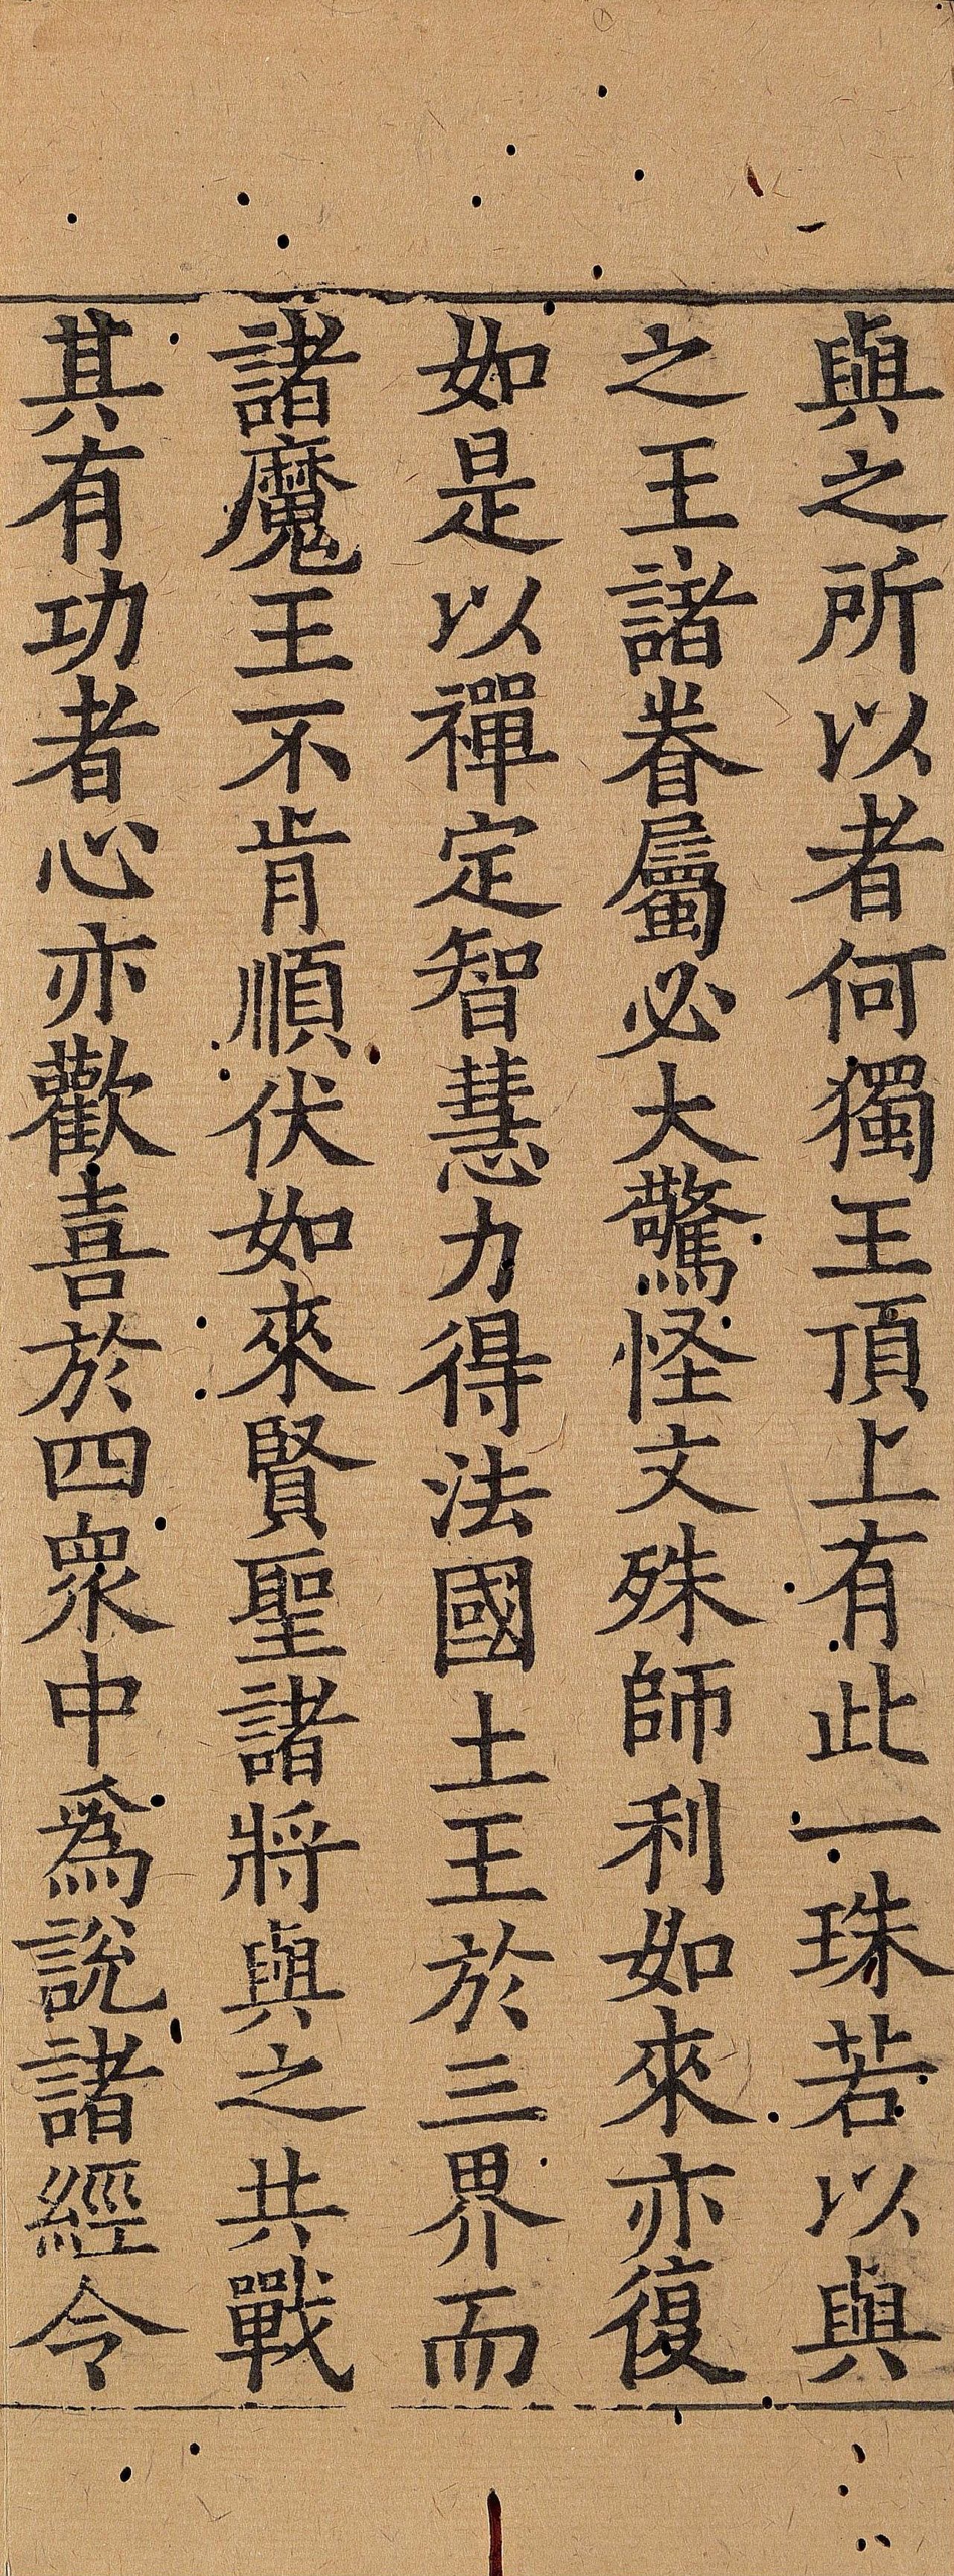 與之所以者何獨王頂上有此一珠若以與
之王諸眷屬必大驚怪文殊師利如來亦復
如是以禪定智慧力得法國土王於三界而
諸魔王不肯順伏如來賢聖諸將與之共戰
其有功者心亦歡喜於四衆中爲說諸經令